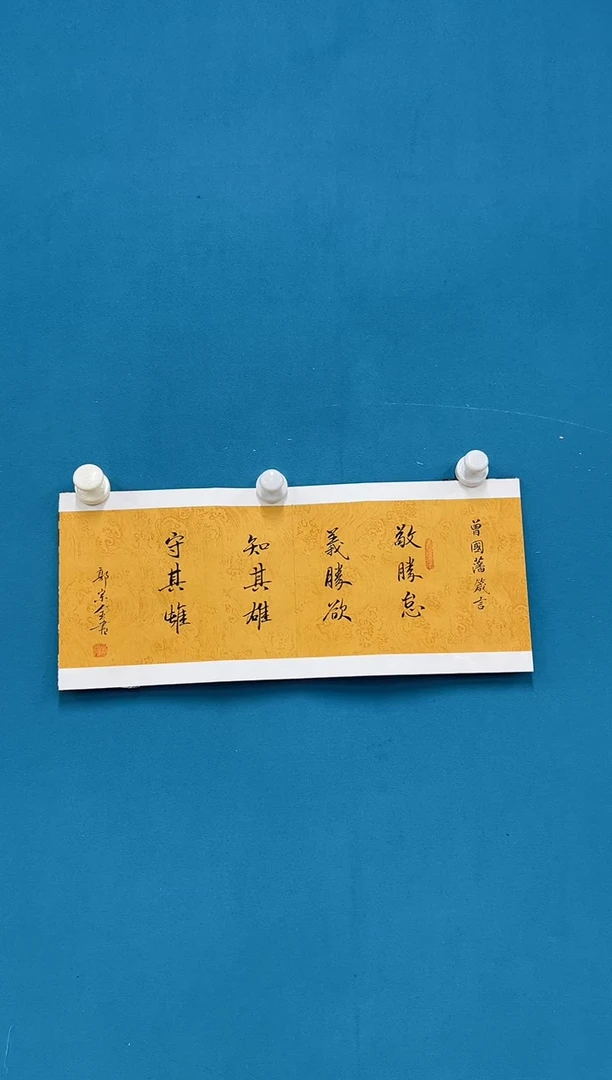 曾國藩箴言
敬勝怠
義勝欲
知其雄
守其雌
郭宗全書